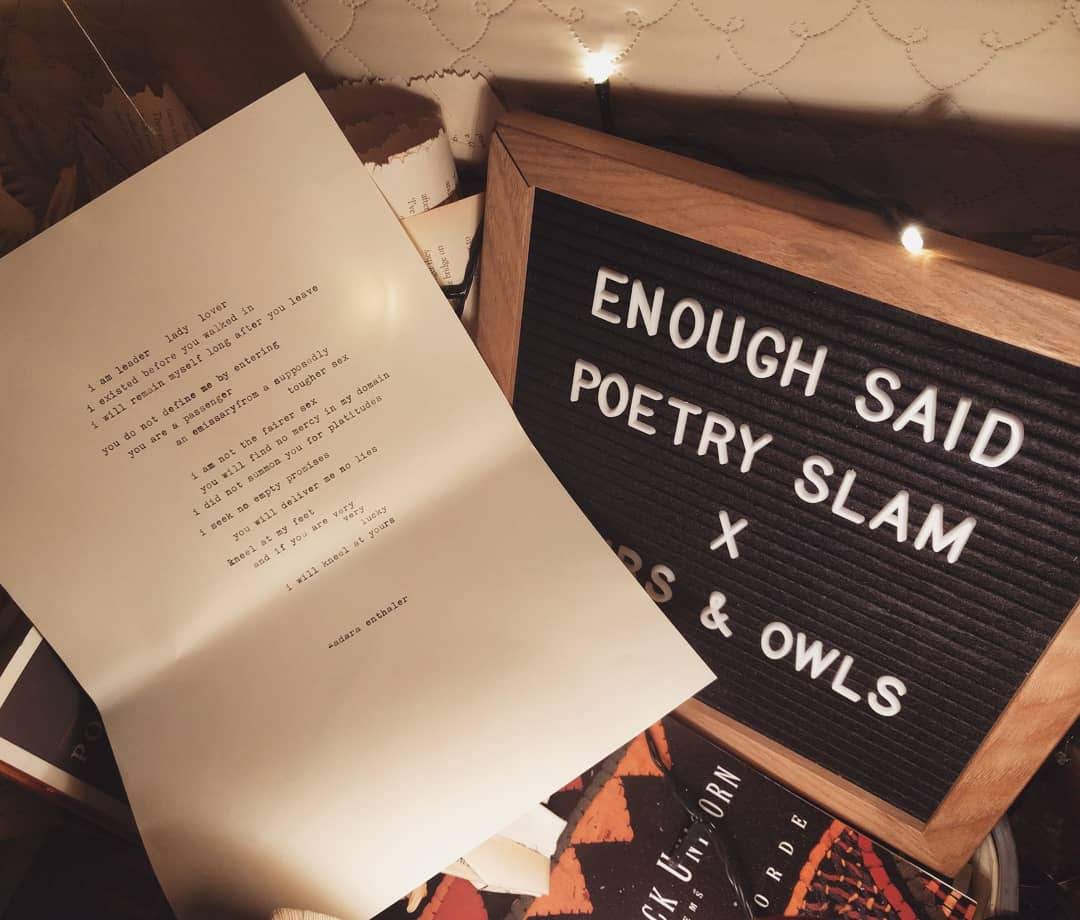 i am leader   lady   lover
i existed before you walked in
i will remain myself long after you leave
you do not define me by entering
you are a passenger
an emissaryfrom a supposedly
tougher sex
i am not the fairer sex
you will find no mercy in my domain
i did not summon you for platitudes
i seek no empty promises
you will deliver me no lies
kneel at my feet
and if you are very
very
lucky
i will kneel at yours
-adara enthaler
ENOUGH SAID
POETRY SLAM
X
& OWLS